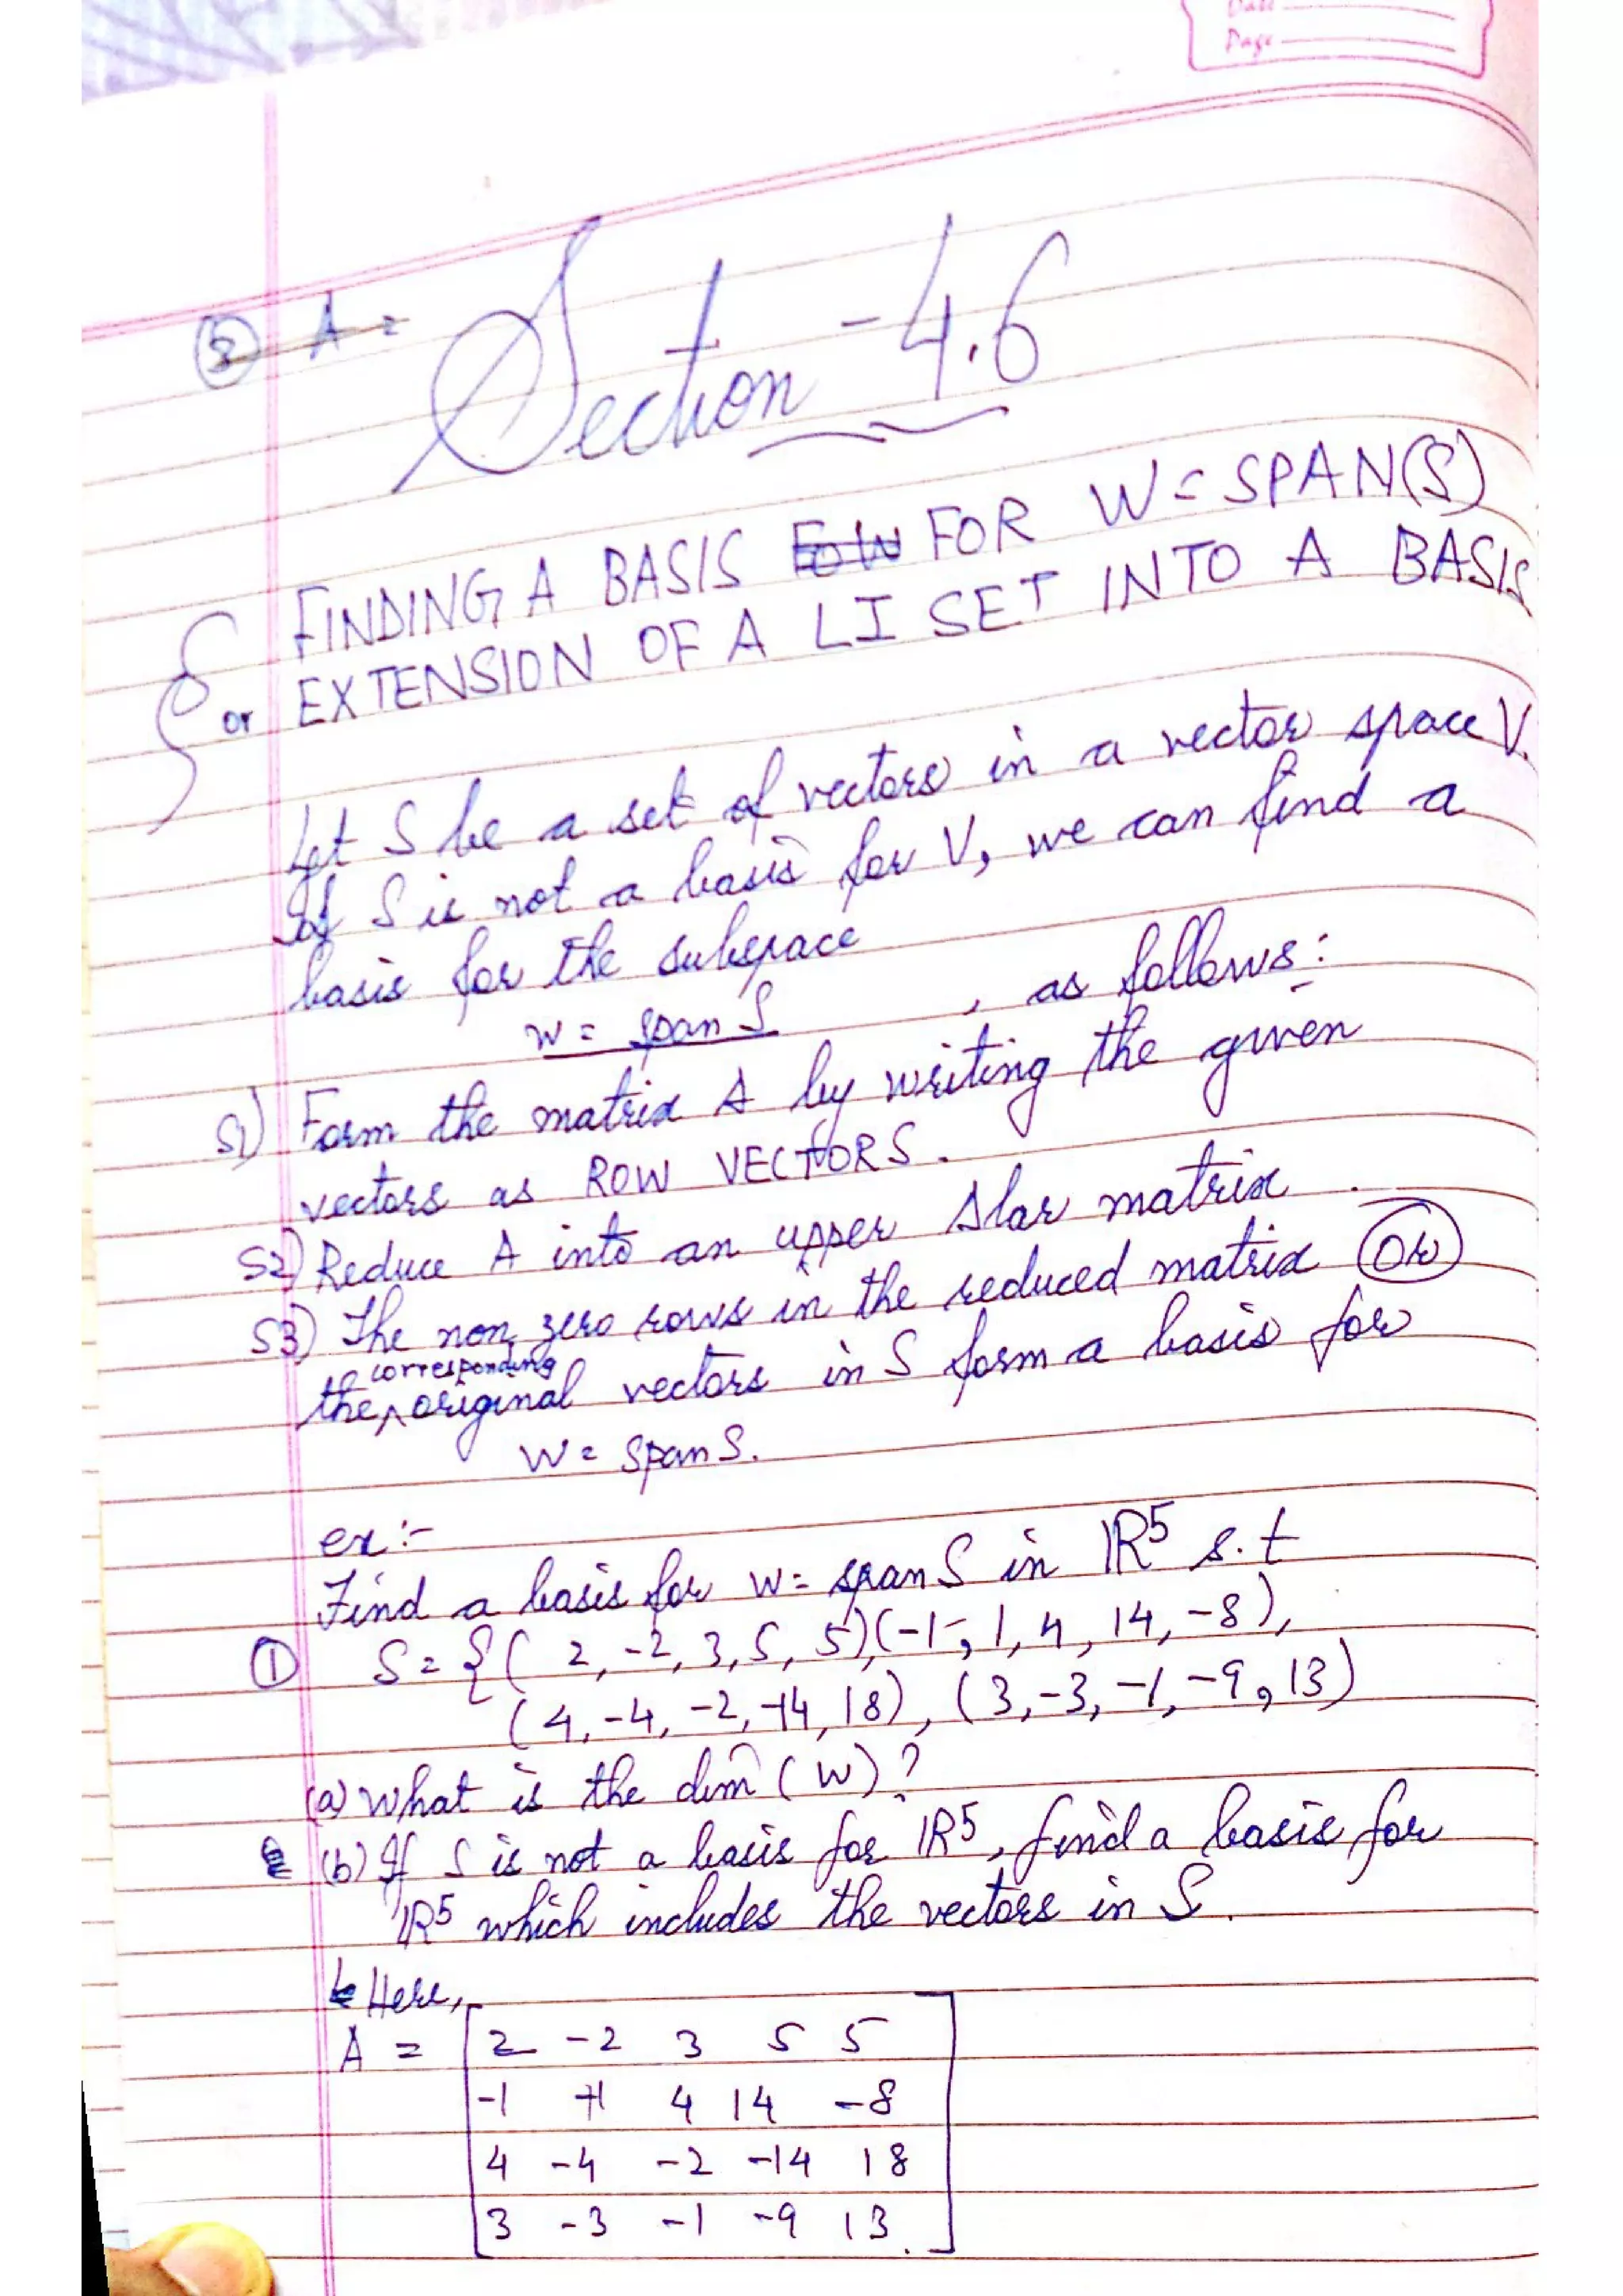 Date
Page
8 A =
Section - 4.6
FINDING A BASIS FOR W = SPAN(S)
or EXTENSION OF A LI SET INTO A BASIS
Let S be a set of vectors in a vector space V.
If S is not a basis for V, we can find a
basis for the subspace
W = span S , as follows:
S1) Form the matrix A by writing the given
vectors as ROW VECTORS.
S2) Reduce A into an upper Δlar matrix.
S3) The non zero rows in the reduced matrix (or)
the corresponding original vectors in S form a basis for
W = span S.
ex:-
Find a basis for W = span S in ℝ⁵ s.t
① S = {( 2, -2, 3, 5, 5), (-1, 1, 4, 14, -8),
(4, -4, -2, -14, 18), (3, -3, -1, -9, 13)
(a) What is the dim (W)?
(b) If S is not a basis for ℝ⁵, find a basis for
ℝ⁵ which includes the vectors in S.
Here,
A = [ 2 -2 3 5 5
-1 +1 4 14 -8
4 -4 -2 -14 18
3 -3 -1 -9 13 ]